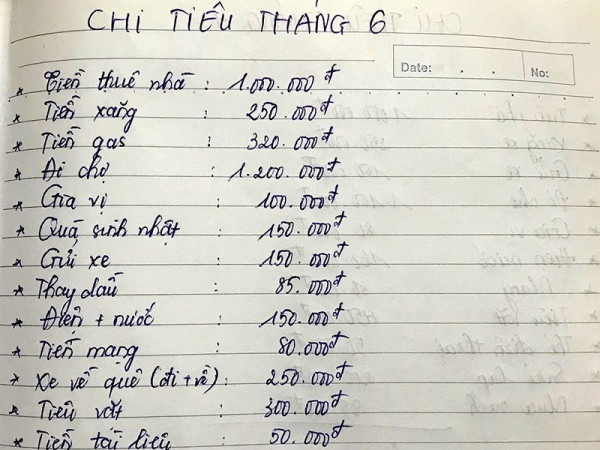 CHI TIÊU THÁNG 6
Date: . . No:
* Tiền thuê nhà : 1.000.000đ
* Tiền xăng : 250.000đ
* Tiền gas : 320.000đ
* Đi chợ : 1.200.000đ
* Gia vị : 100.000đ
* Quà sinh nhật : 150.000đ
* Gửi xe : 150.000đ
* Thay dầu : 85.000đ
* Điện + nước : 150.000đ
* Tiền mạng : 80.000đ
* Xe về quê (đi + về) : 250.000đ
* Tiêu vặt : 300.000đ
* Tiền tài liệu : 50.000đ